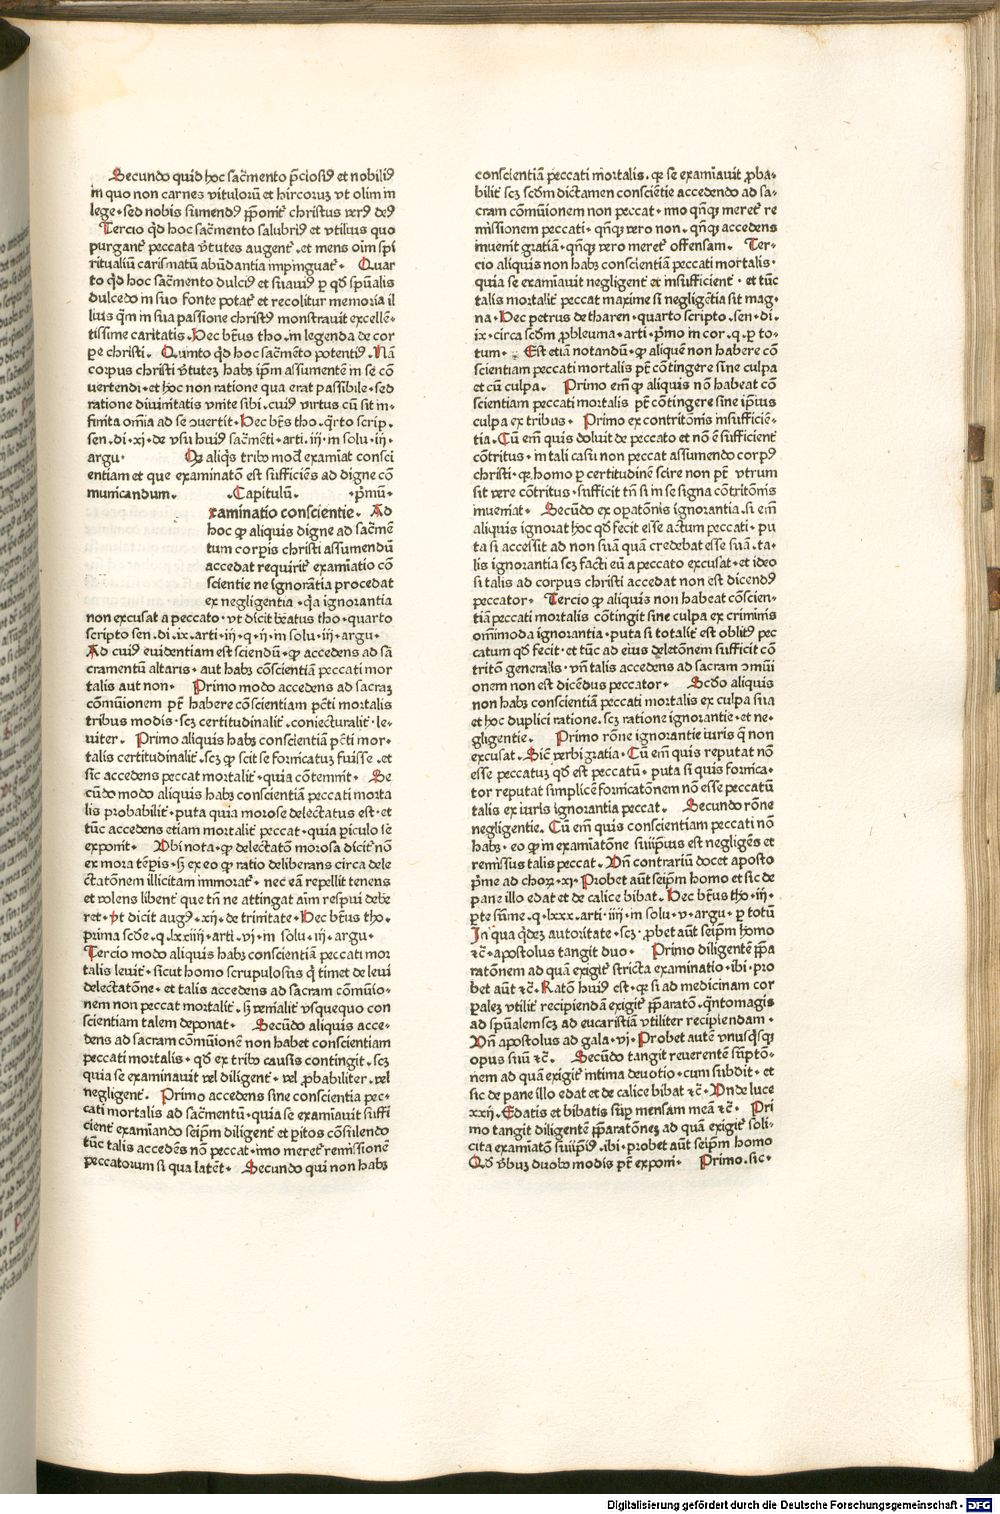 Secundo quid hoc sac̃mento p̃ciosiꝰ et nobiliꝰ
in quo non carnes vitulorũ et hircoruꝫ vt olim in
lege. sed nobis sumendꝰ ꝓponit᷑ christus verꝰ deꝰ
Tercio q̃d hoc sac̃mento salubriꝰ et vtilius quo
purgant᷑ peccata v̓tutes augent᷑. et mens oĩm spi
ritualiũ carismatũ abũdantia impinguat᷑. Quar
to q̃d hoc sac̃mento dulciꝰ et suauiꝰ ꝑ qd̓ sp̃ualis
dulcedo in suo fonte potat᷑ et recolitur memoria il
lius q̃m in sua passione christꝰ monstrauit excellẽ-
tissime caritatis. Hec btũs tho. in legenda de cor
ꝑe christi. Quinto q̃d hoc sac̃mẽto potentiꝰ. Nã
corpus christi v̓tuteꝫ habꝫ ip̃m assumentẽ in se cõ
uertendi. et hoc non ratione qua erat passibile. sed
ratione diuinitatis vnite sibi. cuiꝰ virtus cũ sit in-
finita om̃ia ad se ↄuertit. Hec btũs tho. q̃rto scrip.
sen. di. xi. de vsu huiꝰ sac̃mẽti. arti. iii. in solu. iii.
argu. Qꝫ aliq̃s tribꝰ mod̓ examiat consci
entiam et que examinatõ est sufficiẽs ad digne cõ
municandum. Capitulũ. p̓mũ.
xaminatio conscientie. Ad
hoc ꝙ aliquis digne ad sac̃mẽ
tum corꝑis christi assumendũ
accedat requirit᷑ examiatio cõ
scientie ne ignorãtia procedat
ex negligentia. q̃a ignorantia
non excusat a peccato. vt dicit btãtus tho. quarto
scripto sen. di. ix. arti. iii. q. ii. in solu. iii. argu.
Ad cuiꝰ euidentiam est sciendũ. ꝙ accedens ad sã
cramentũ altaris. aut habꝫ cõscientiã peccati mor
talis aut non. Primo modo accedens ad sacraꝫ
cõmũionem pt̃ habere cõscientiam pc̃ti mortalis
tribus modis. scꝫ certitudinalit᷑. coniecturalit᷑. le-
uiter. Primo aliquis habꝫ conscientiã pc̃ti mor-
talis certitudinalit᷑. scꝫ ꝙ scit se fornicatuꝫ fuisse. et
sic accedens peccat mortalit᷑. quia cõtemnit. Se
cũdo modo aliquis habꝫ conscientiã peccati morta
lis probabilit᷑. puta quia morose delectatus est. et
tũc accedens etiam mortalit᷑ peccat. quia ꝑiculo se
exponit. Vbi nota. ꝙ delectatõ morosa dicit᷑ nõ
ex mora tẽpis. sꝫ ex eo ꝙ ratio deliberans circa dele
ctatõnem illicitam immorat᷑. nec eã repellit tenens
et volens libent᷑ que tñ ne attingat aĩm respui debe
ret. vt dicit augꝰ. xij. de trinitate. Hec btũs tho.
prima scd̓e. q. lxxiiij. arti. vj. in solu. iij. argu.
Tercio modo aliquis habꝫ conscientiam peccati mor
talis leuit᷑. sicut homo scrupulosus q̃ timet de leui
delectatõne. et talis accedens ad sacram cõmũio-
nem non peccat mortalit᷑. sꝫ venialit᷑ vsquequo con
scientiam talem deponat. Secũdo aliquis acce-
dens ad sacram cõmũionem non habet conscientiam
peccati mortalis. qd̓ ex tribꝰ causis contingit. scꝫ
quia se examinauit vel diligent᷑. vel ꝓbabiliter. vel
negligent᷑. Primo accedens sine conscientia pec-
cati mortalis ad sac̃mentũ. quia se examĩauit suffi
cient᷑ examĩando seip̃m diligent᷑ et ꝑitos cõsulendo
tũc talis accedẽs nõ peccat. imo meret᷑ remissionẽ
peccatorum si qua latẽt. Secundo qui non habꝫ
conscientiã peccati mortalis. qꝛ se examĩauit ꝓba-
bilit᷑ scꝫ scd̓m dictamen consciẽtie accedendo ad sa-
cram cõmũionem non peccat. imo qñqꝫ meret᷑ re
missionem peccati. qñqꝫ vero non. qñqꝫ accedens
inuenit gratiam. qñqꝫ vero meret᷑ offensam. Ter-
cio aliquis non habꝫ conscientiã peccati mortalis.
quia se examĩauit negligent᷑ et insufficient᷑. et tũc
talis mortalit᷑ peccat maxime si negligẽtia sit mag-
na. Hec petrus de tharen. quarto scripto. sen. di.
ix. circa scd̓m ꝓbleuma. arti. p̓mo in cor. q. ꝑ to-
tum. Est etiã notandũ. ꝙ aliquẽ non habere cõ
scientiam peccati mortalis pt̃ cõtingere sine culpa
et cũ culpa. Primo em̃ ꝙ aliquis nõ habeat cõ
scientiam peccati mortalis pt̃ cõtingere sine ipsius
culpa ex tribus. Primo ex contritõnis insufficiẽ-
tia. Cũ em̃ quis doluit de peccato et nõ ẽ sufficient᷑
cõtritus. in tali casu non peccat assumendo corpꝰ
christi. qꝛ homo ꝑ certitudinẽ scire non pt̃ vtrum
sit vere cõtritus. sufficit tñ si in se signa cõtritõnis
inueniat. Secũdo ex oꝑatõnis ignorantia. si em̃
aliquis ignorat hoc qd̓ fecit esse actum peccati. pu
ta si accessit ad non suã quã credebat esse suã. ta-
lis ignorantia scꝫ facti eũ a peccato excusat. et ideo
si talis ad corpus christi accedat non est dicendꝰ
peccator. Tercio ꝙ aliquis non habeat cõscien-
tiã peccati mortalis cõtingit sine culpa ex criminis
om̃imoda ignorantia. puta si totalit᷑ est oblitꝰ pec
catum qd̓ fecit. et tũc ad eius deletõnem sufficit cõ
tritõ generalis. vñ talis accedens ad sacram ↄmũi
onem non est dicẽdus peccator. Scd̓o aliquis
non habꝫ conscientiã peccati mortalis ex culpa sua
et hoc duplici ratione. scꝫ ratione ignorantie. et ne-
gligentie. Primo rõne ignorantie iuris q̃ non
excusat. Sic᷑ verbi gratia. Cũ em̃ quis reputat nõ
esse peccatuꝫ qd̓ est peccatũ. puta si quis fornica-
tor reputat simplicẽ fornicatõnem nõ esse peccatũ
talis ex iuris ignorantia peccat. Secundo rõne
negligentie. Cũ em̃ quis conscientiam peccati nõ
habꝫ. eo ꝙ in examĩatõne suiip̃ius est negligẽs et
remissus talis peccat. Vñ contrariũ docet aposto
p̓me ad choꝝ. xi. Probet aũt seip̃m homo et sic de
pane illo edat et de calice bibat. Hec btũs tho. iii.
ꝑte sũme. q. lxxx. arti. iiii. in solu. v. argu. ꝑ totũ
In qua q̃dez autoritate. scꝫ. ꝓbet aũt seip̃m homo
⁊c̃. apostolus tangit duo. Primo diligentẽ p̃pa
ratõnem ad quã exigit᷑ stricta examinatio. ibi. pro
bet aũt ⁊c̃. Ratõ huiꝰ est. qꝛ si ad medicinam cor
ꝑaleꝫ vtilit᷑ recipiendã exigit᷑ p̃paratõ. q̃ntomagis
ad sp̃ualem scꝫ ad eucaristiã vtiliter recipiendam.
Vñ apostolus ad gala. vi. Probet autẽ vnusq̃sqꝫ
opus suũ ⁊c̃. Secũdo tangit reuerentẽ sũptõ-
nem ad quã exigit᷑ intima deuotio. cum subdit. et
sic de pane illo edat et de calice bibat ⁊c̃. Vnde luce
xxij. Edatis et bibatis sũp mensam meã ⁊c̃. Pri
mo tangit diligentẽ p̃paratõneꝫ ad quã exigit᷑ soli-
cita examĩatõ suiip̃iꝰ. ibi. probet aũt seip̃m homo
Qd̓ v̓buꝫ duobꝰ modis pt̃ exponi. Primo. sic.
Digitalisierung gefördert durch die Deutsche Forschungsgemeinschaft - DFG